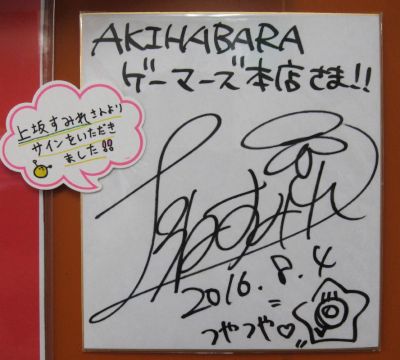 AKIHABARA
ゲーマーズ本店さま!!
上坂すみれさんより
サインをいただき
ました!!
上坂すみれ
2016.8.4
つやつや♡